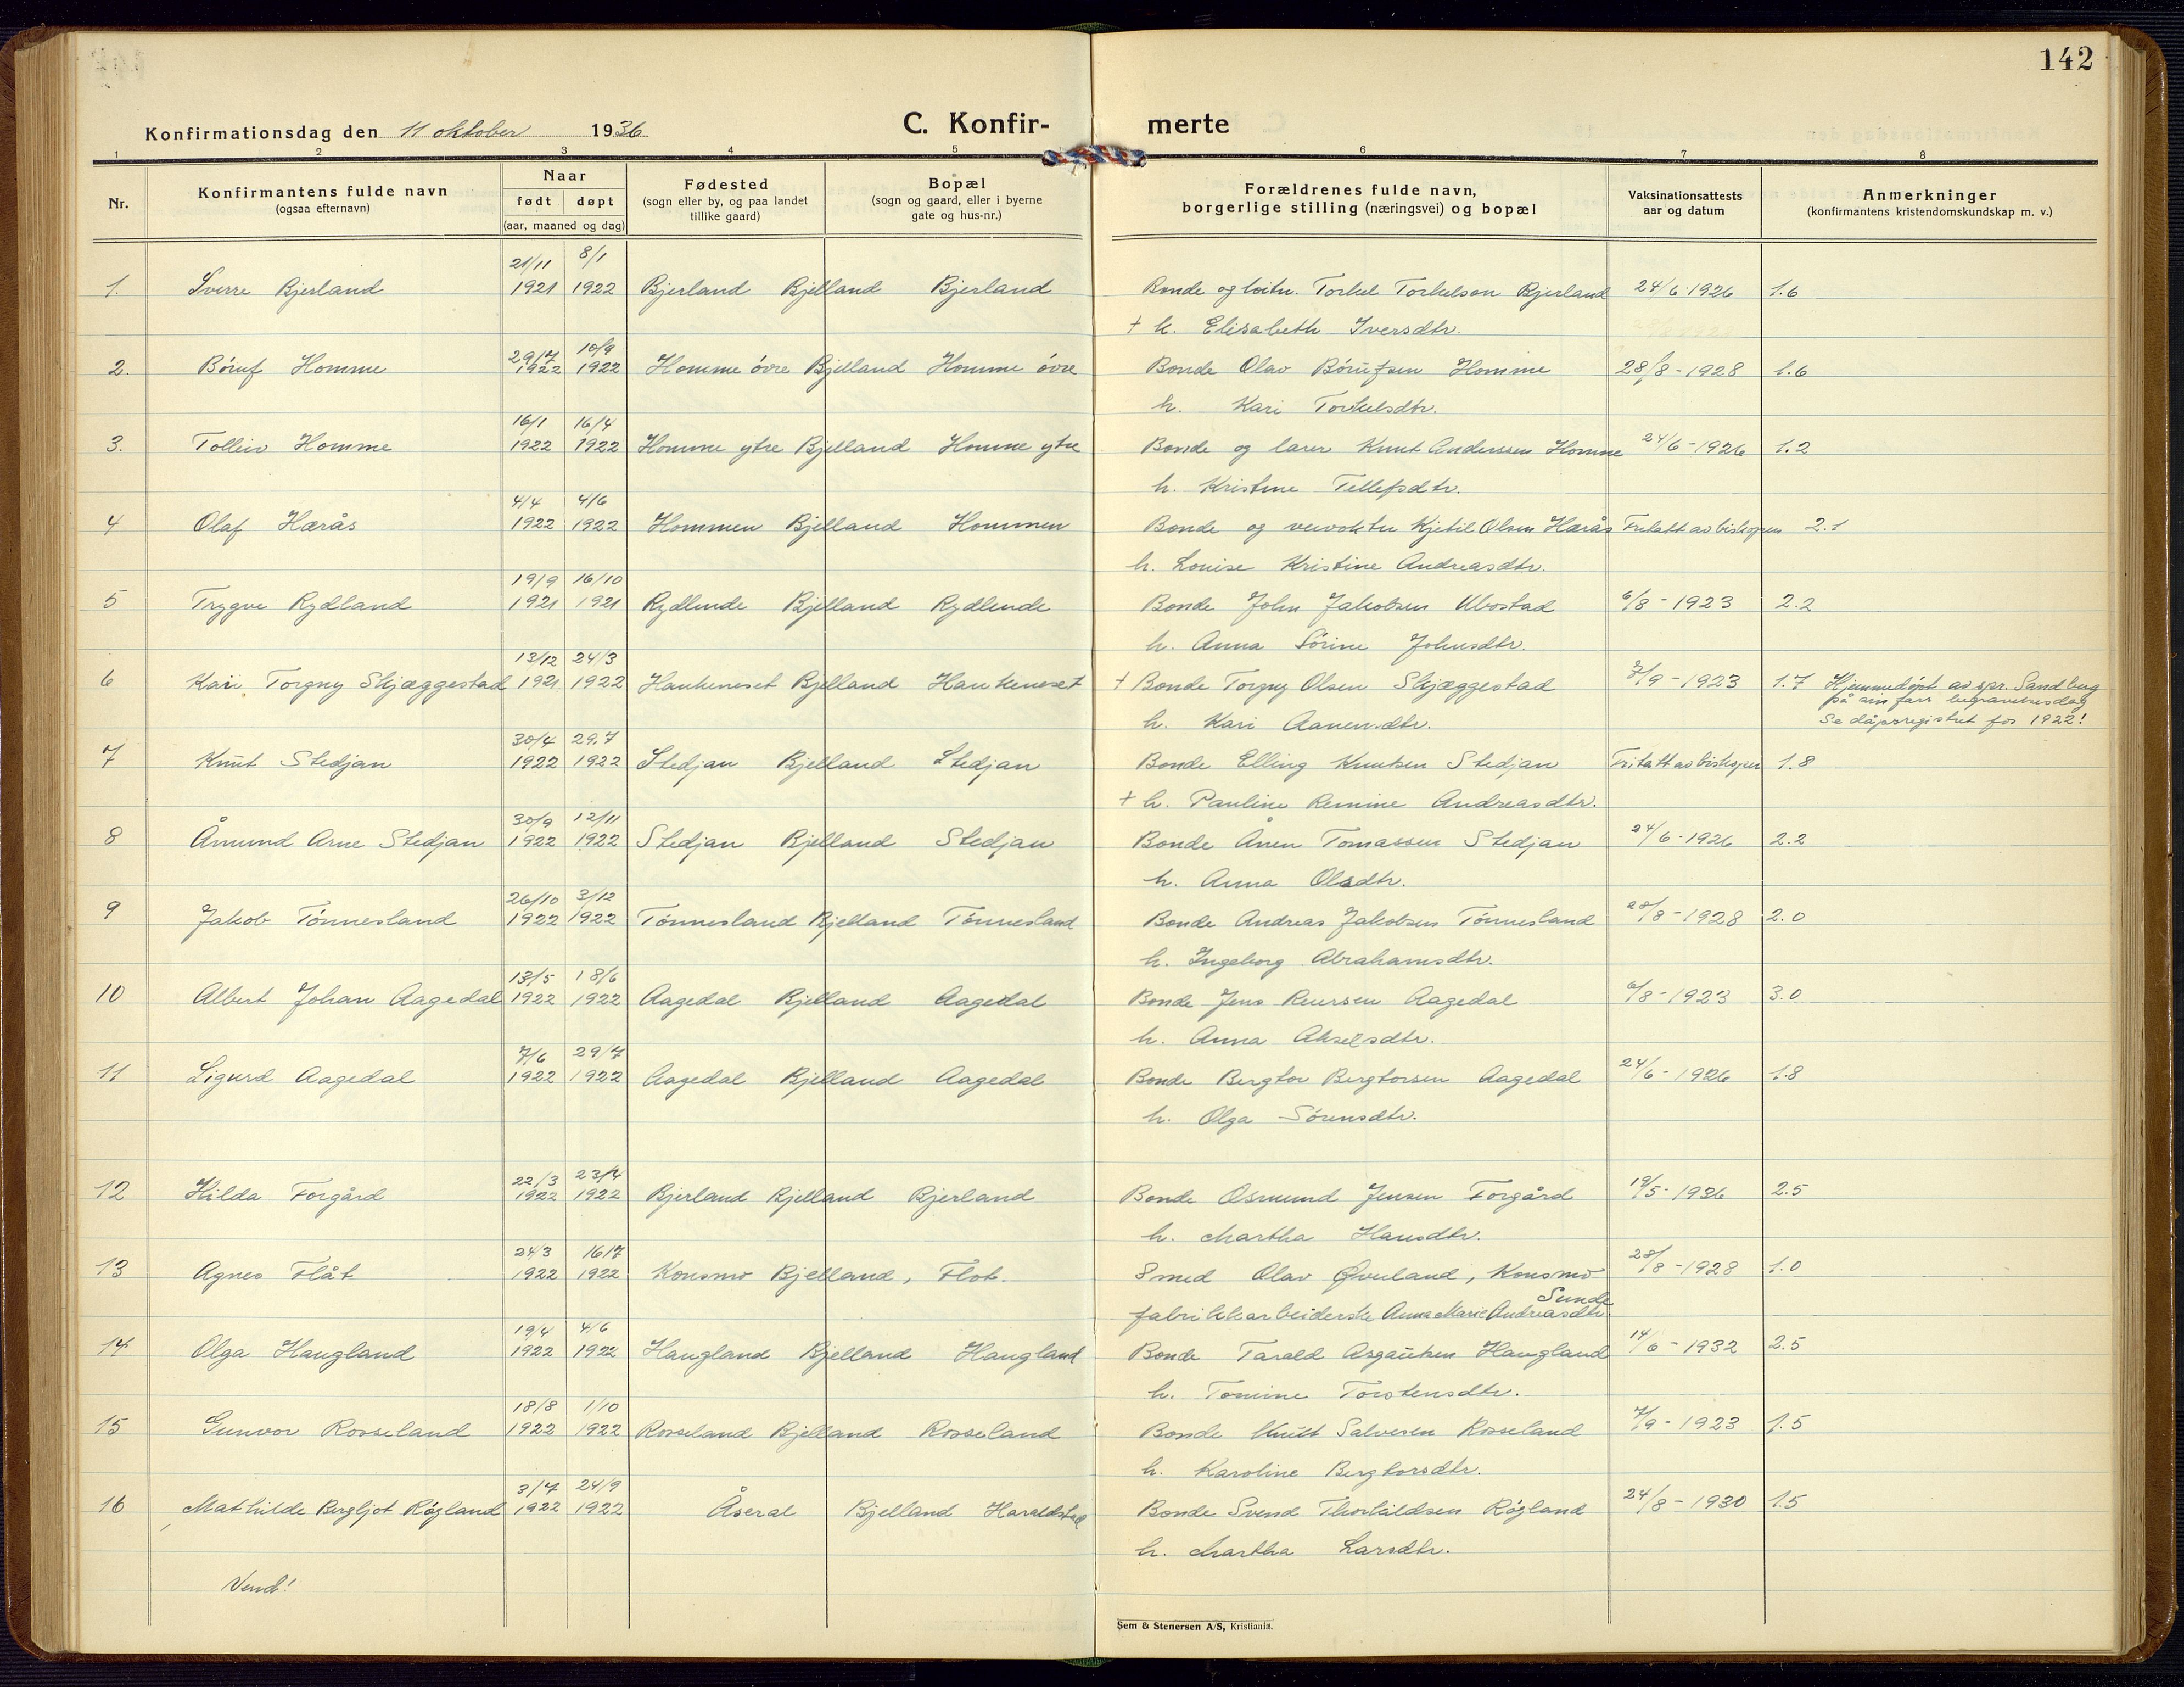 142
Konfirmationsdag den 11 oktober 1936 C. Konfir- merte
1 2 3 4 5 6 7 8
Nr. Konfirmantens fulde navn (ogsaa efternavn) Naar født døpt (aar, maaned og dag) Fødested (sogn eller by, og paa landet tillike gaard) Bopæl (sogn og gaard, eller i byerne gate og hus-nr.) Forældrenes fulde navn, borgerlige stilling (næringsvei) og bopæl Vaksinationsattests aar og datum Anmerkninger (konfirmantens kristendomskundskap m. v.)
21/11 8/1
1. Sverre Bjerland 1921 1922 Bjerland Bjelland Bjerland Bonde og Torkel Torkelson Bjerland 24/6-1926 1.6
+ h. Elisabeth Iversdtr.
29/7 10/9
2. Bóruf Homme 1922 1922 Homme óvre Bjelland Homme óvre Bonde Olav Bórufsen Homme 28/8-1928 1.6
h. Kari Torkelsdtr.
16/1 16/4
3. Tolleiv Homme 1922 1922 Homme ytre Bjelland Homme ytre Bonde og lærer Knut Anderssen Homme 24/6-1926 1.2
h. Kristine Tellefsdtr.
4/4 4/6
4 Olaf Hærås 1922 1922 Hommen Bjelland Hommen Bonde og veivokter Kjetil Olsen Hærås Fritatt av biskopen 2.1
h. Louise Kristine Andreasdtr.
19/9 16/10
5 Trygve Rydland 1921 1921 Rydlende Bjelland Rydlende Bonde John Jakobsen Ubostad 6/8-1923 2.2
h. Anna Sórine Johnsdtr.
13/12 24/3
6 Kari Torgny Skjæggestad 1921 1922 Haukeneset Bjelland Haukeneset + Bonde Torgny Olsen Skjæggestad 7/9-1923 1.7 Hjemmedópt av spr. Sandberg
på sin fars begravelsesdag
h. Kari Aanensdtr. Se dåpsregistret for 1922!
30/4 29.7
7 Knut Stedjan 1922 1922 Stedjan Bjelland Stedjan Bonde Elling Knutsen Stedjan Fritatt av biskopen 1.8
+ h. Pauline Remine Andreasdtr.
30/9 12/11
8 Åmund Arne Stedjan 1922 1922 Stedjan Bjelland Stedjan Bonde Ånen Tomassen Stedjan 24/6-1926 2.2
h. Anna Olsdtr.
26/10 3/12
9 Jakob Tónnesland 1922 1922 Tónnesland Bjelland Tónnesland Bonde Andreas Jakobsen Tónnesland 28/8-1928 2.0
h. Ingeborg Abrahamsdtr.
13/5 18/6
10 Albert Johan Aagedal 1922 1922 Aagedal Bjelland Aagedal Bonde Jens Reiersen Aagedal 6/8-1923 3.0
h. Anna Akselsdtr.
7/6 29/7
11 Sigurd Aagedal 1922 1922 Aagedal Bjelland Aagedal Bonde Bergtor Bergtorsen Aagedal 24/6-1926 1.8
h. Olga Sórensdtr.
22/3 23/4
12 Hilda Forgård 1922 1922 Bjerland Bjelland Bjerland Bonde Osmund Jensen Forgård 19/5-1936 2.5
h. Martha Hansdtr.
24/3 16/7
13 Agnes Flåt 1922 1922 Konsmo Bjelland, Flot. Smed Olav Øverland, Konsmo 28/8-1928 1.0
Sunde
fabrikkarbeiderske Anna Marie Andreasdtr.
19/4 4/6
14 Olga Haugland 1922 1922 Haugland Bjelland Haugland Bonde Tarald Asgautsen Haugland 14/6-1932 2.5
h. Tomine Torstensdtr.
18/8 1/10
15 Gunvor Rosseland 1922 1922 Rosseland Bjelland Rosseland Bonde Knut Salvesen Rosseland 7/9-1923 1.5
h. Karoline Bergtorsdtr.
3/7 24/9
16 Mathilde Bergljot Róyland 1922 1922 Åseral Bjelland Haraldstad Bonde Svend Thorkildsen Róyland 24/8-1930 1.5
h. Martha Larsdtr.
Vend!
Sem & Stenersen A/S, Kristiania.